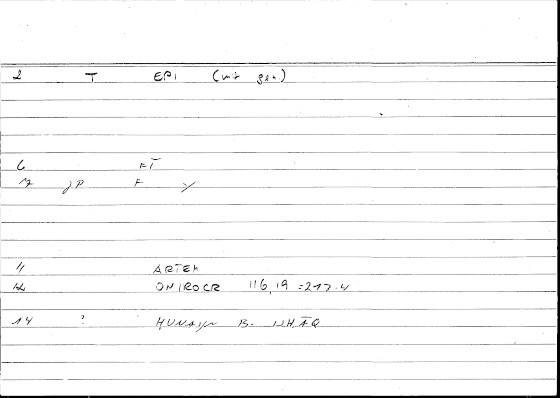 2 T EPI (mit gen)
6 FT
7 JP F
11 ARTEM
12 ONIROCR 116,19 = 217.4
14 ? HUNAYN B. ISHĀQ